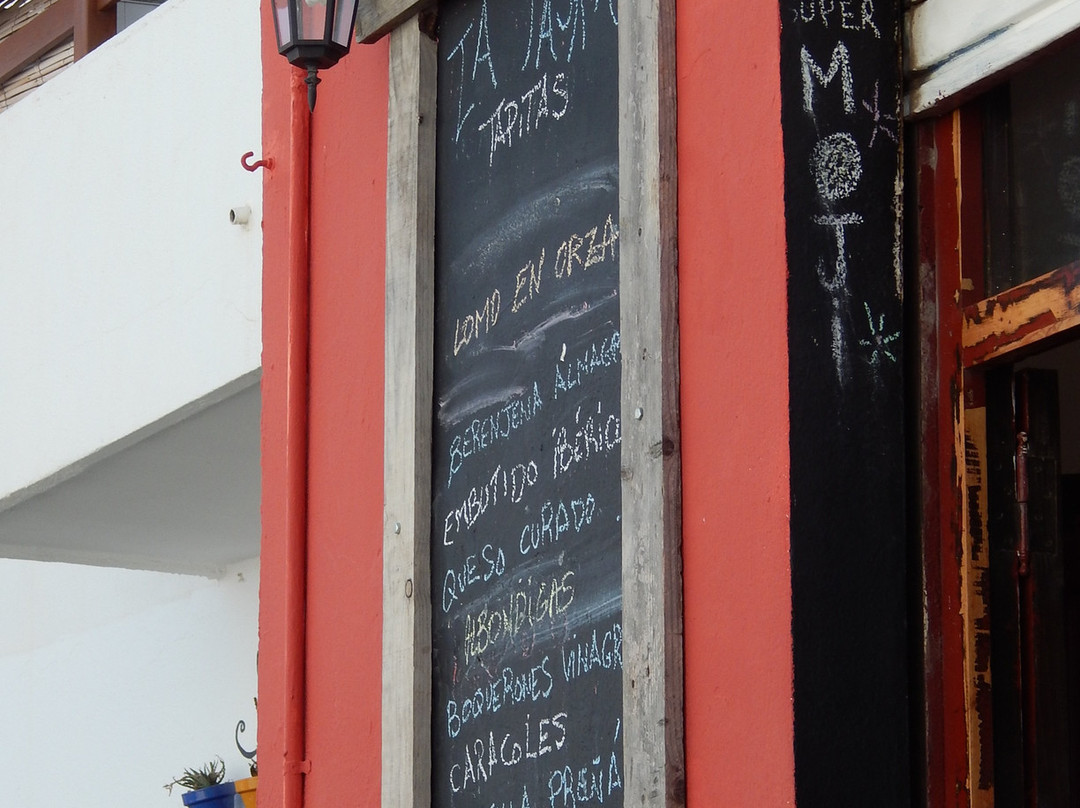 TAPITAS
LOMO EN ORZA
BERENJENA ÁLMAGR
EMBUTIDO IBÉRIC
QUESO CURADO
ALBONDIGAS
BOQUERONES VINAGR
CARACOLES
PREÑÁ
SUPER
MOJI